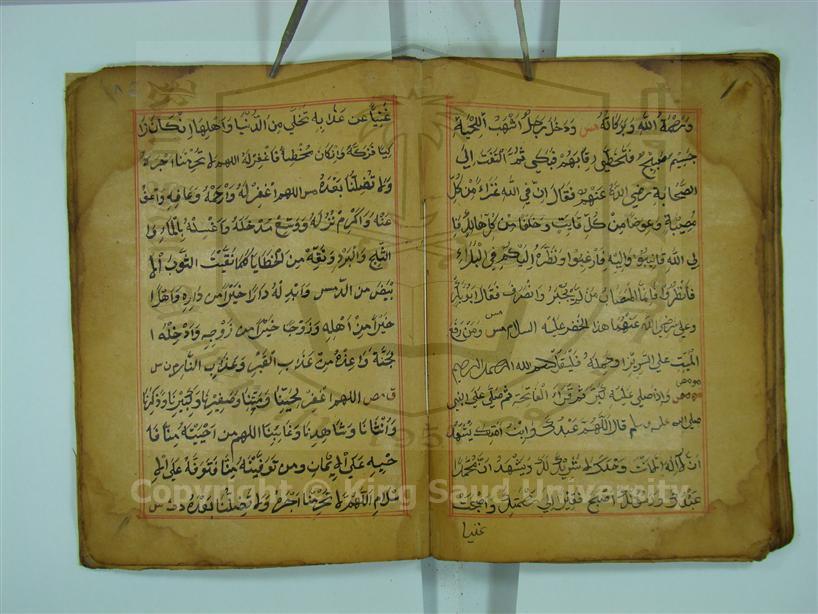 ورحمة الله وبركاته مس ودخل رجل اشهب اللحية
جسيم صبيح فتخطى رقابهم فبكى ثم التفت الى
الصحابة رضي الله عنهم فقال ان في الله عزاء من كل
مصيبة وعوضا من كل فايت وخلفا من كل هالك فا
لى الله فانيبوا واليه فارغبوا ونظره اليكم في البلاء
فانظروا فانما المصاب من لم يجبر وانصرف فقال ابو بكر
وعلي رضي الله عنهما هذا الخضر عليه السلام مس ومن رفع
الميت على السرير او حمله فليقل بسم الله الرحمن الرحيم
مو مص واذا صلى عليه كبر ثم قرا الفاتحة ثم صلى على النبي
صلى الله عليه وسلم ثم قال اللهم عبدك وابن امتك يشهد
ان لا اله الا انت وحدك لا شريك لك ويشهد ان محمدا
عبدك ورسولك اصبح فقيرا الى رحمتك واصبحت
غنيا
غنيا عن عذابه تخلى من الدنيا واهلها ان كان زا
كيا فزكه وان كان مخطئا فاغفر له اللهم لا تحرمنا اجره
ولا تضلنا بعده مس اللهم اغفر له وارحمه وعافه واعف
عنه واكرم نزله ووسع مدخله واغسله بالماء و
الثلج والبرد ونقه من الخطايا كما نقيت الثوب الا
بيض من الدنس وابدله دارا خيرا من داره واهلا
خيرا من اهله وزوجا خيرا من زوجه وادخله ا
لجنة واعذه من عذاب القبر وعذاب النار م ت س
ق مص اللهم اغفر لحينا وميتنا وصغيرنا وكبيرنا وذكرنا
وانثانا وشاهدنا وغائبنا اللهم من احييته منا فا
حيه على الايمان ومن توفيته منا فتوفه على الا
سلام اللهم لا تحرمنا اجره ولا تضلنا بعده د ت س
Copyright © King Saud University